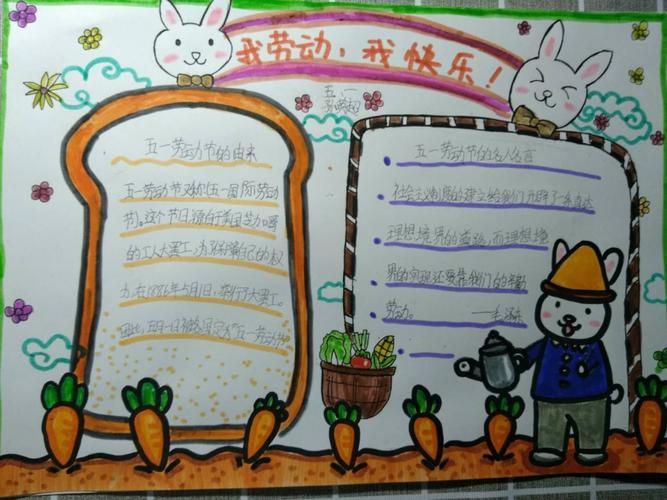 我劳动，我快乐！
五、一
五一劳动节的由来
五一劳动节又称五一国际劳动
节。这个节日源自于美国芝加哥
的工人大罢工，为保障自己的权
力，在1886年5月1日，举行了大罢工。
因此，五月一日被各国定为"五一劳动节"
五一劳动节的名人名言
社会主义制度的建立给我们开辟了一条到达
理想境界的道路，而理想境
界的实现还要靠我们的辛勤
劳动。 ——毛泽东